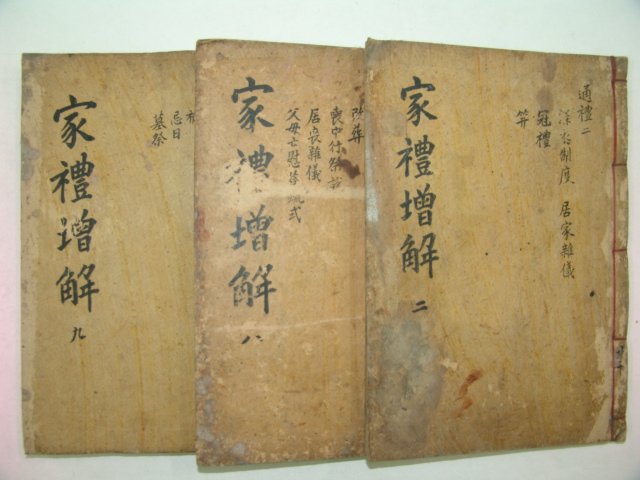 家禮增解
九
忌日
墓祭
家禮增解
八
改葬
喪中行祭
居喪雜儀
父母亡慰答疏式
家禮增解
二
通禮二
深衣制度 居家雜儀
冠禮
笄